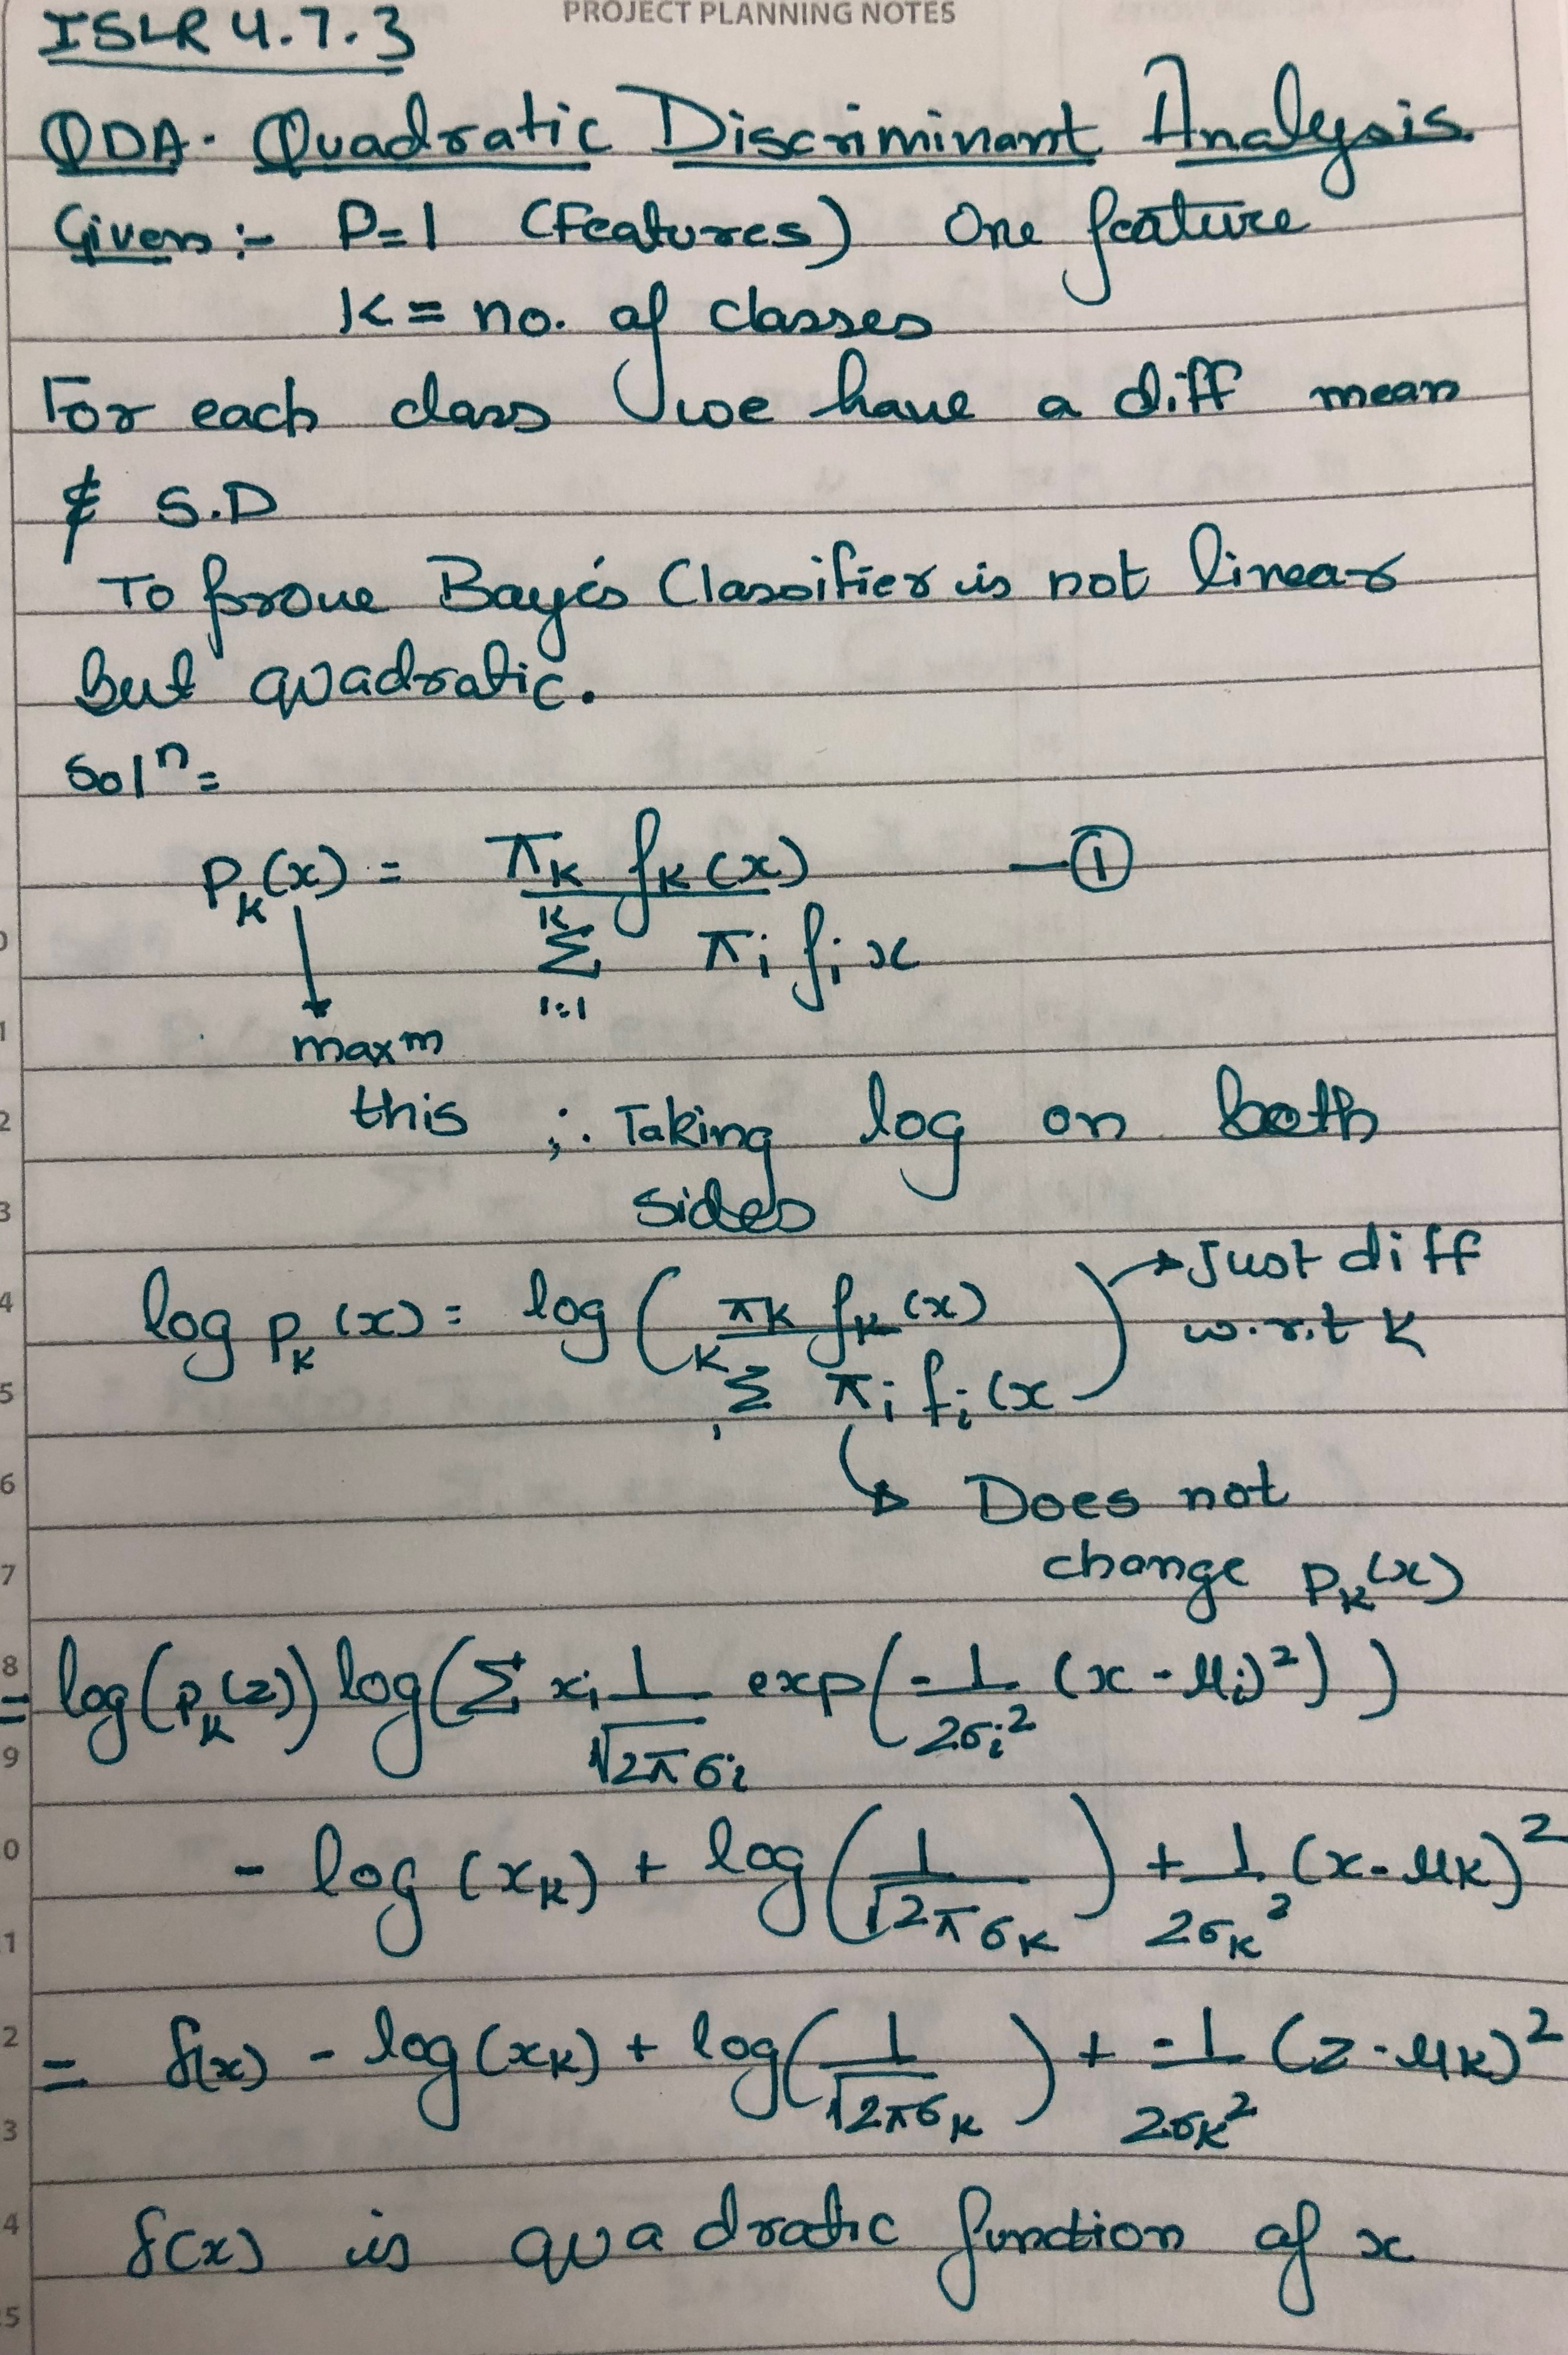 PROJECT PLANNING NOTES
ISLR 4.7.3
QDA - Quadratic Discriminant Analysis.
Given :- P=1 (Features) One feature
K = no. of classes
For each class we have a diff mean
& S.D
To prove Baye's Classifier is not linear
But quadratic.
Solⁿ =
P_k(x) = π_k f_k(x) —①
K Σ i=1 π_i f_i x
maxᵐ
this ;. Taking log on both
sides
log P_k(x) = log ( πk f_k(x) ) → Just diff
w.r.t K
K Σ 1 π_i f_i(x
Does not
change P_k(x)
= log(P_k(z)) log(Σ x_i 1/√2π σ_i exp(-1/2σ_i² (x - μ_i)²))
- log(x_k) + log(1/√2π σ_k) + 1/2σ_k² (x - μ_k)²
= δ(x) - log(x_k) + log(1/√2πσ_k) + -1/2σ_k² (z - μ_k)²
δ(x) is quadratic function of x